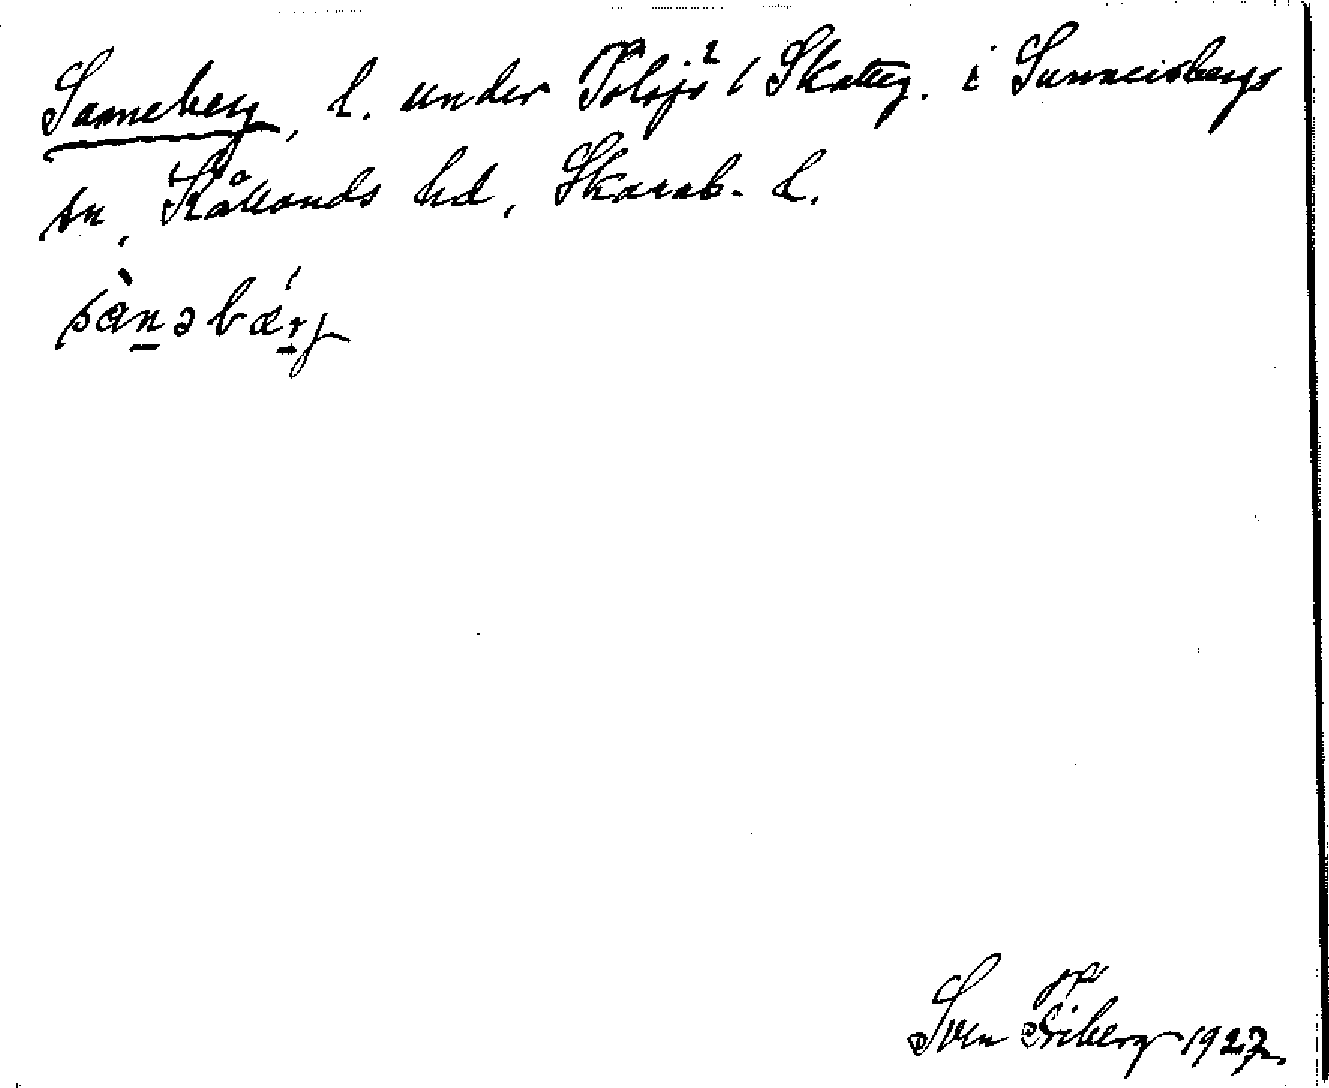 Sanneberg, l. under Tolsjö 1 Skatteg. i Sunnersbergs
sn, Kållands hd, Skarab. l.
sànəbærj
Sven Friberg 1927.